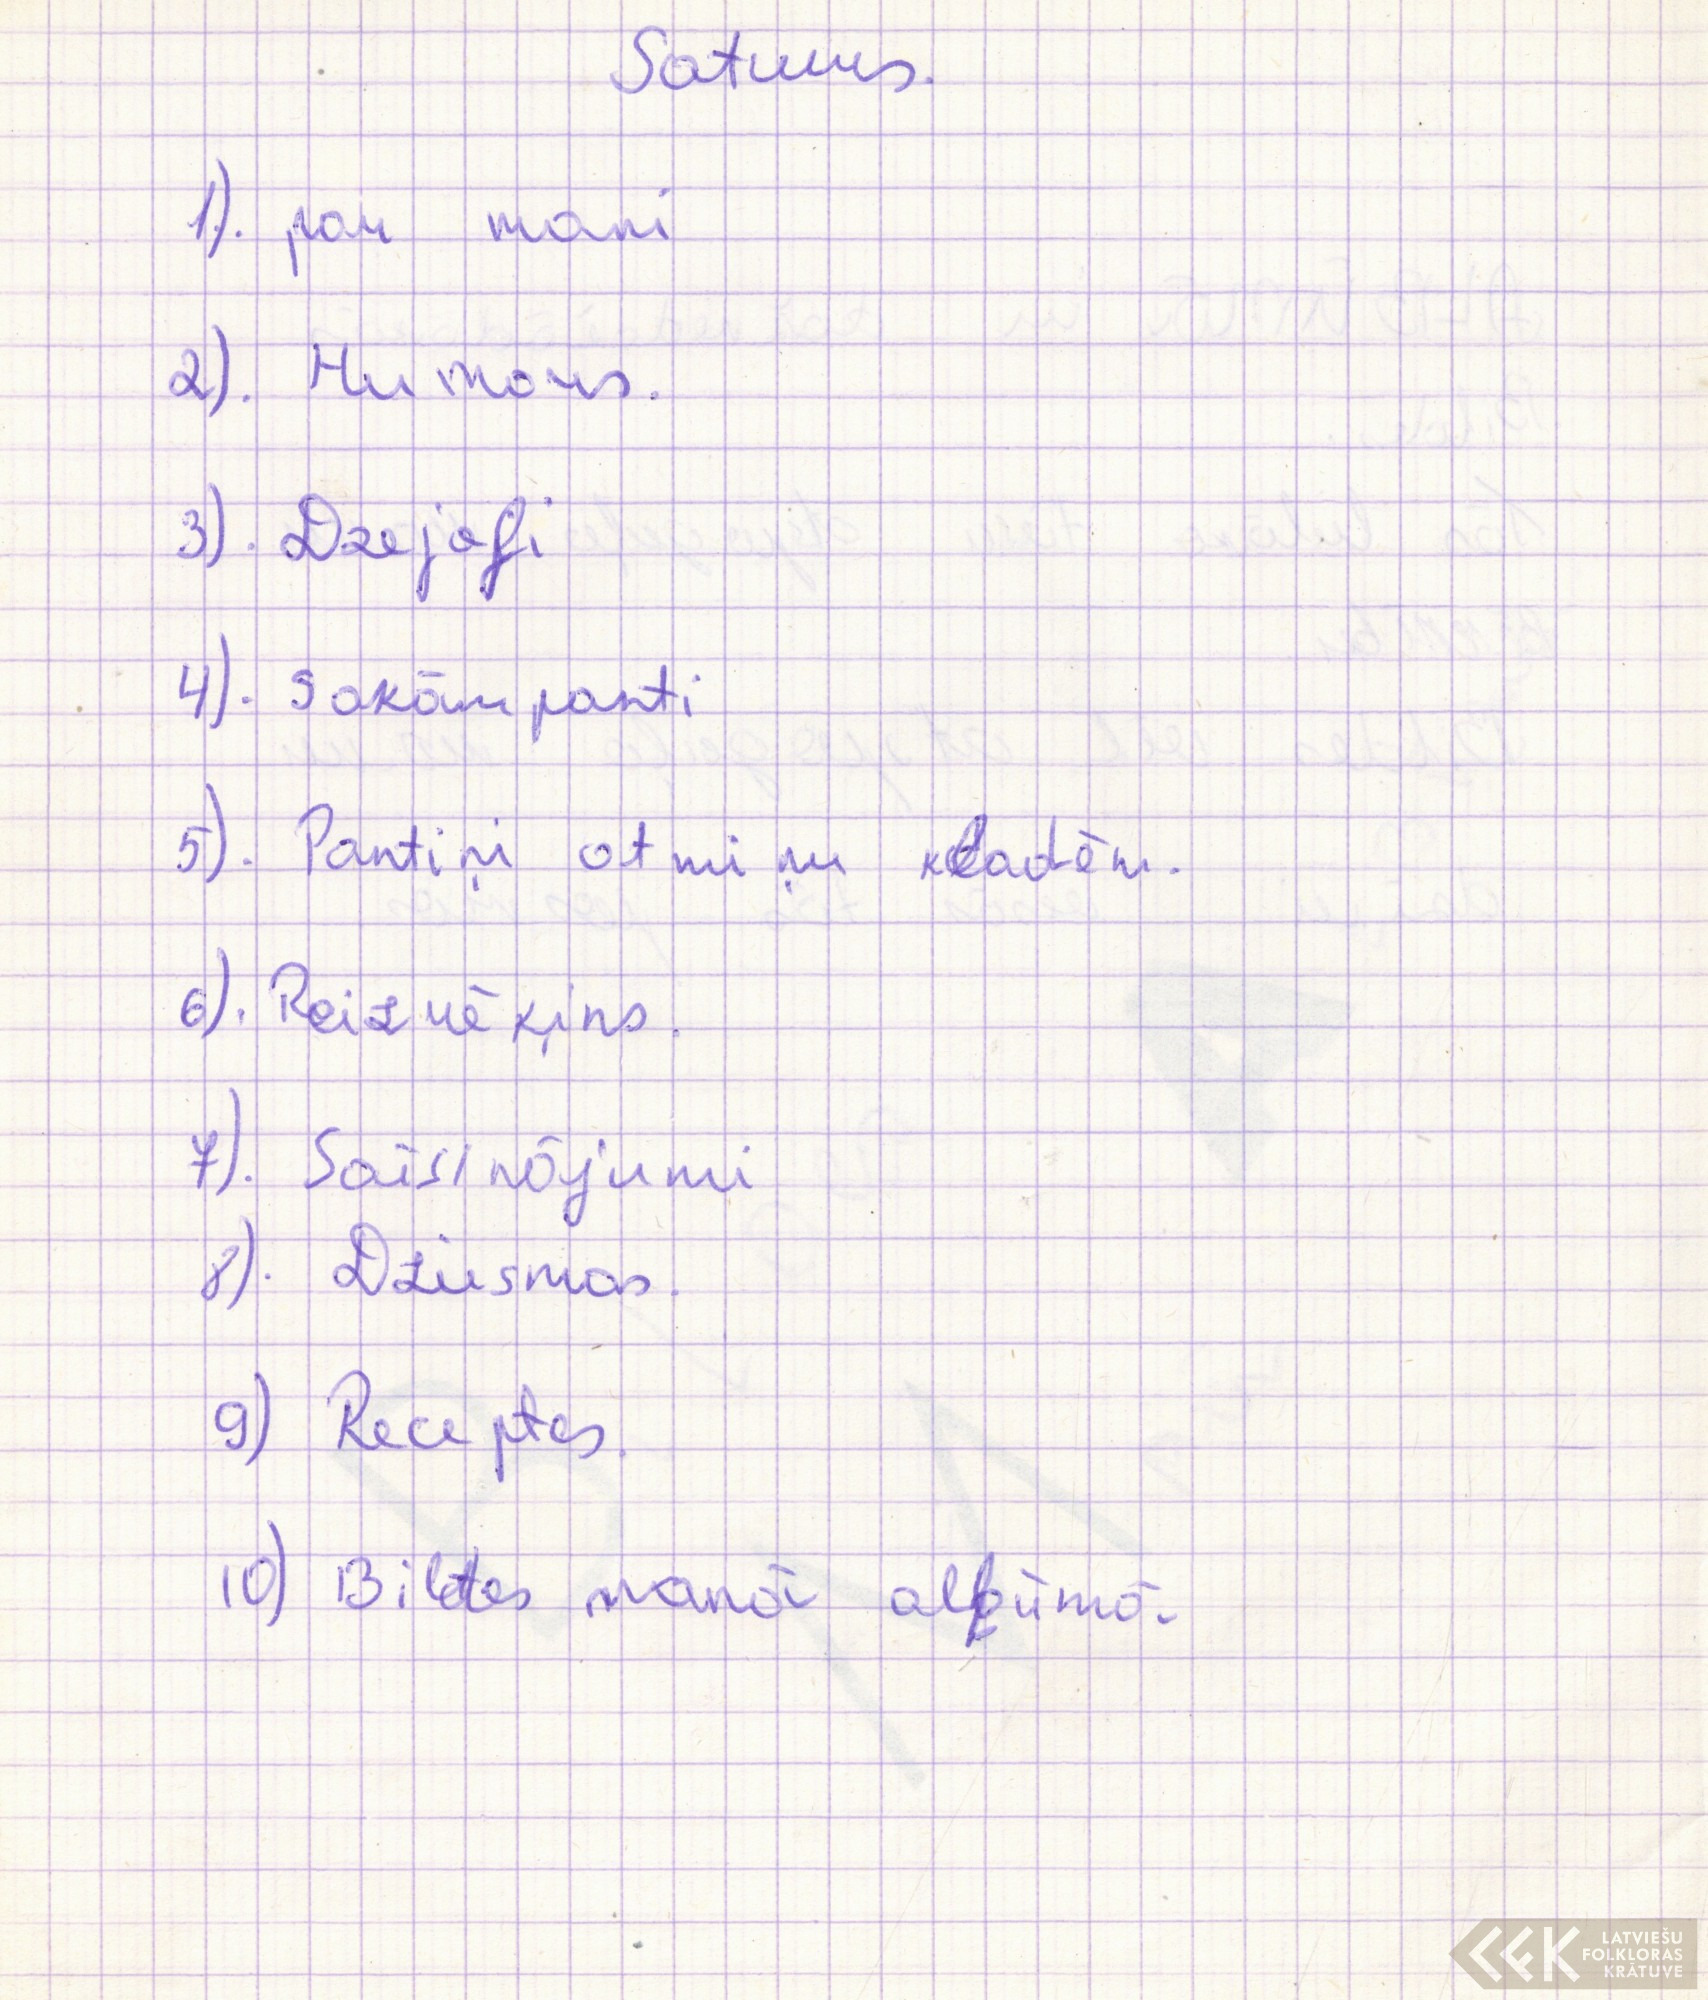 Saturs.
1). par mani
2). Humors.
3). Dzejoļi
4). sakāmpanti
5). Pantiņi atmiņu kladēm.
6). Reizrēķins.
7). Saīsinājumi
8). Dziesmas.
9) Receptes.
10) Bildes manā albūmā.
LATVIEŠU
FOLKLORAS
KRĀTUVE